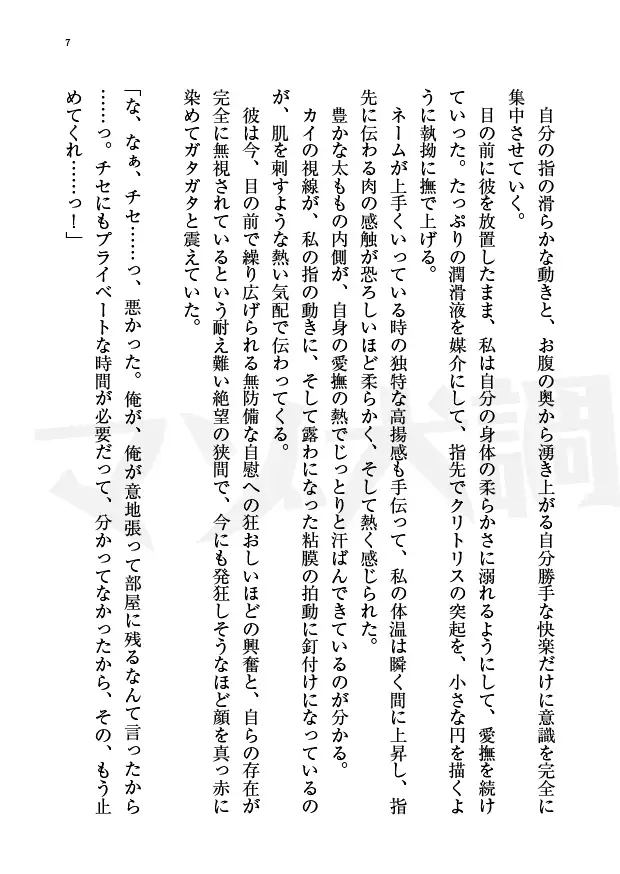 7
自分の指の滑らかな動きと、お腹の奥から湧き上がる自分勝手な快楽だけに意識を完全に
集中させていく。
目の前に彼を放置したまま、私は自分の身体の柔らかさに溺れるようにして、愛撫を続け
ていった。たっぷりの潤滑液を媒介にして、指先でクリトリスの突起を、小さな円を描くよ
うに執拗に撫で上げる。
ネームが上手くいっている時の独特な高揚感も手伝って、私の体温は瞬く間に上昇し、指
先に伝わる肉の感触が恐ろしいほど柔らかく、そして熱く感じられた。
豊かな太ももの内側が、自身の愛撫の熱でじっとりと汗ばんできているのが分かる。
カイの視線が、私の指の動きに、そして露わになった粘膜の拍動に釘付けになっているの
が、肌を刺すような熱い気配で伝わってくる。
彼は今、目の前で繰り広げられる無防備な自慰への狂おしいほどの興奮と、自らの存在が
完全に無視されているという耐え難い絶望の狭間で、今にも発狂しそうなほど顔を真っ赤に
染めてガタガタと震えていた。
「な、なぁ、チセ……っ、悪かった。俺が、俺が意地張って部屋に残るなんて言ったから
……っ。チセにもプライベートな時間が必要だって、分かってなかったから、その、もう止
めてくれ……っ！」